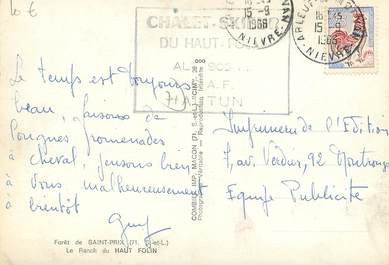 10 €
CHALET-SKIEUR
DU HAUT-FOLIN
ALT. 902 M.
C.A.F.
AUTUN
15-9
1966
NIEVRE
ARLEUF
18 H 15
15-9
1966
NIEVRE
Le temps est toujours
beau, faisons de
longues promenades
à cheval, pensons bien
à vous malheureusement
à bientôt
Guy
COMBIER IMP. MACON (71, S.-et-L.) "CIM"
Photographie Véritable - Reproduction Interdite
Imprimerie de l'Edition
7, av. Verdier, 92 Montrouge
Equipe Publicité
Forêt de SAINT-PRIX (71, S.-et-L.)
Le Ranch du HAUT FOLIN